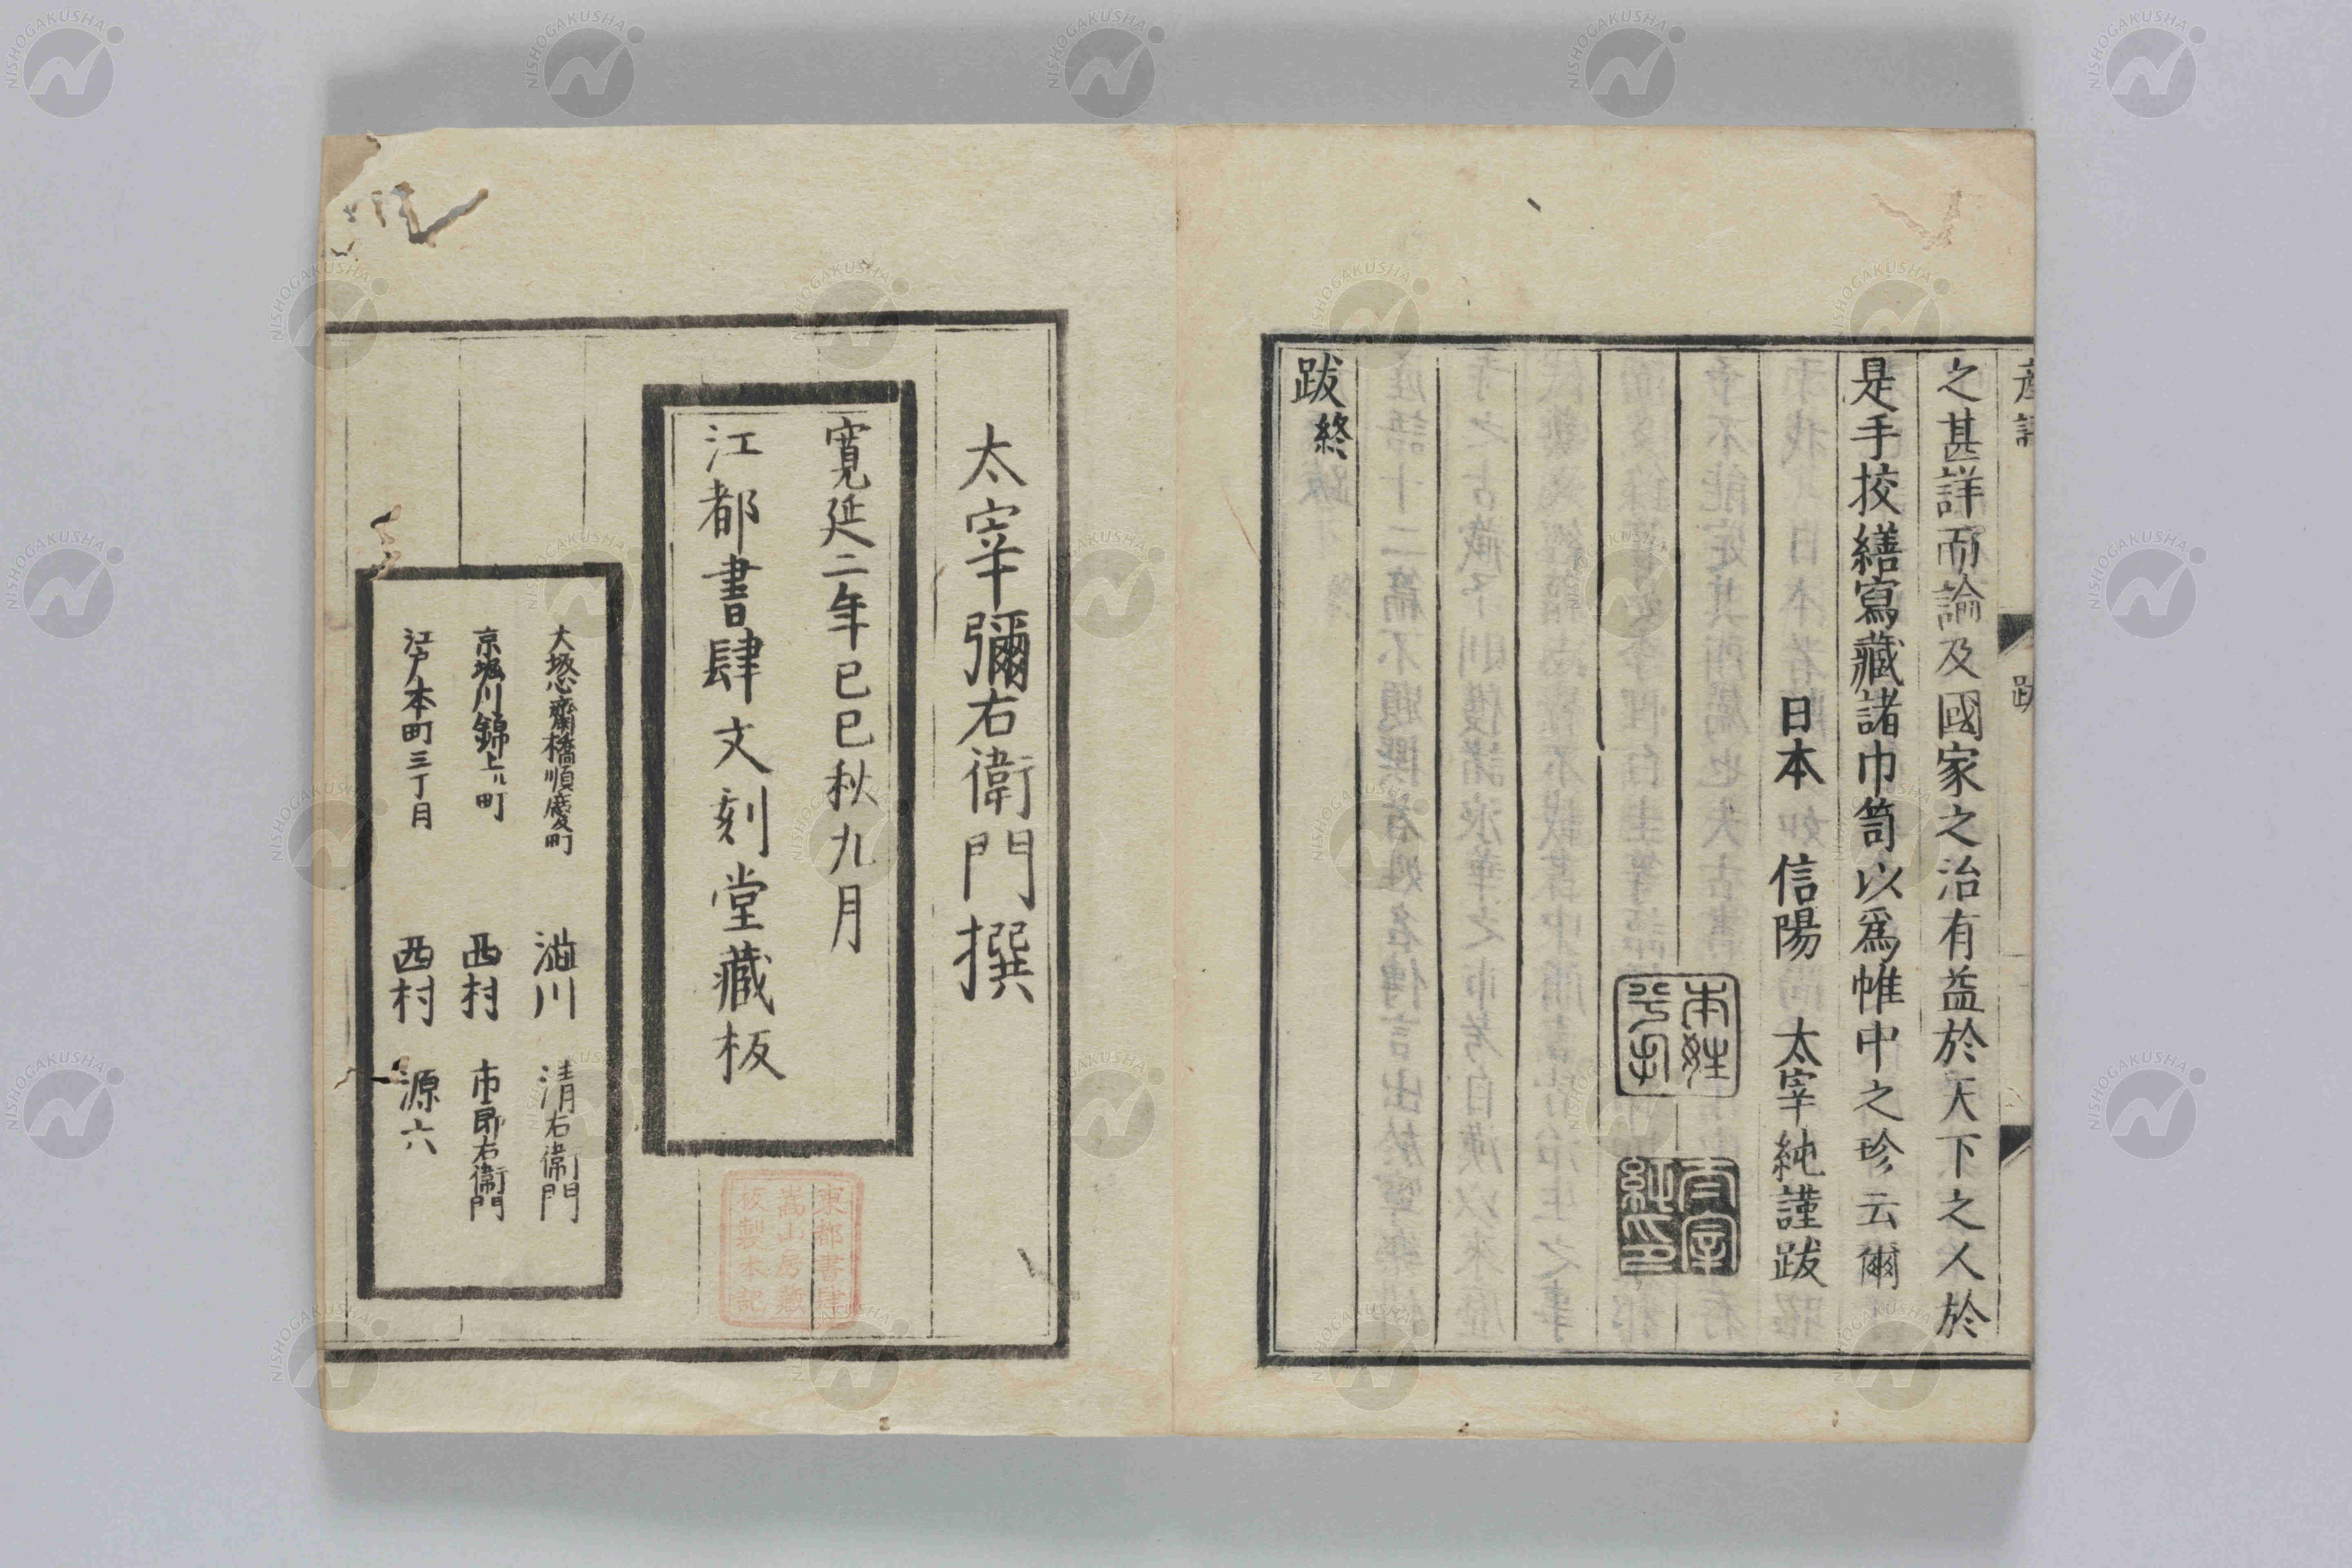 之甚詳而論及國家之治有益於天下之人於
是手挍繕寫藏諸巾笥以爲帷中之珍云爾
日本 信陽 太宰純謹跋
本姓
平手
太宰
純印
跋終
太宰彌右衛門撰
寛延二年己巳秋九月
江都書肆文刻堂藏板
東都書肆
嵩山房藏
板製本記
大坂心齋橋順慶町 澁川 清右衛門
京堀川錦上ル町 西村 市郎右衛門
江戸本町三丁目 西村 源六
NISHOGAKUSHA